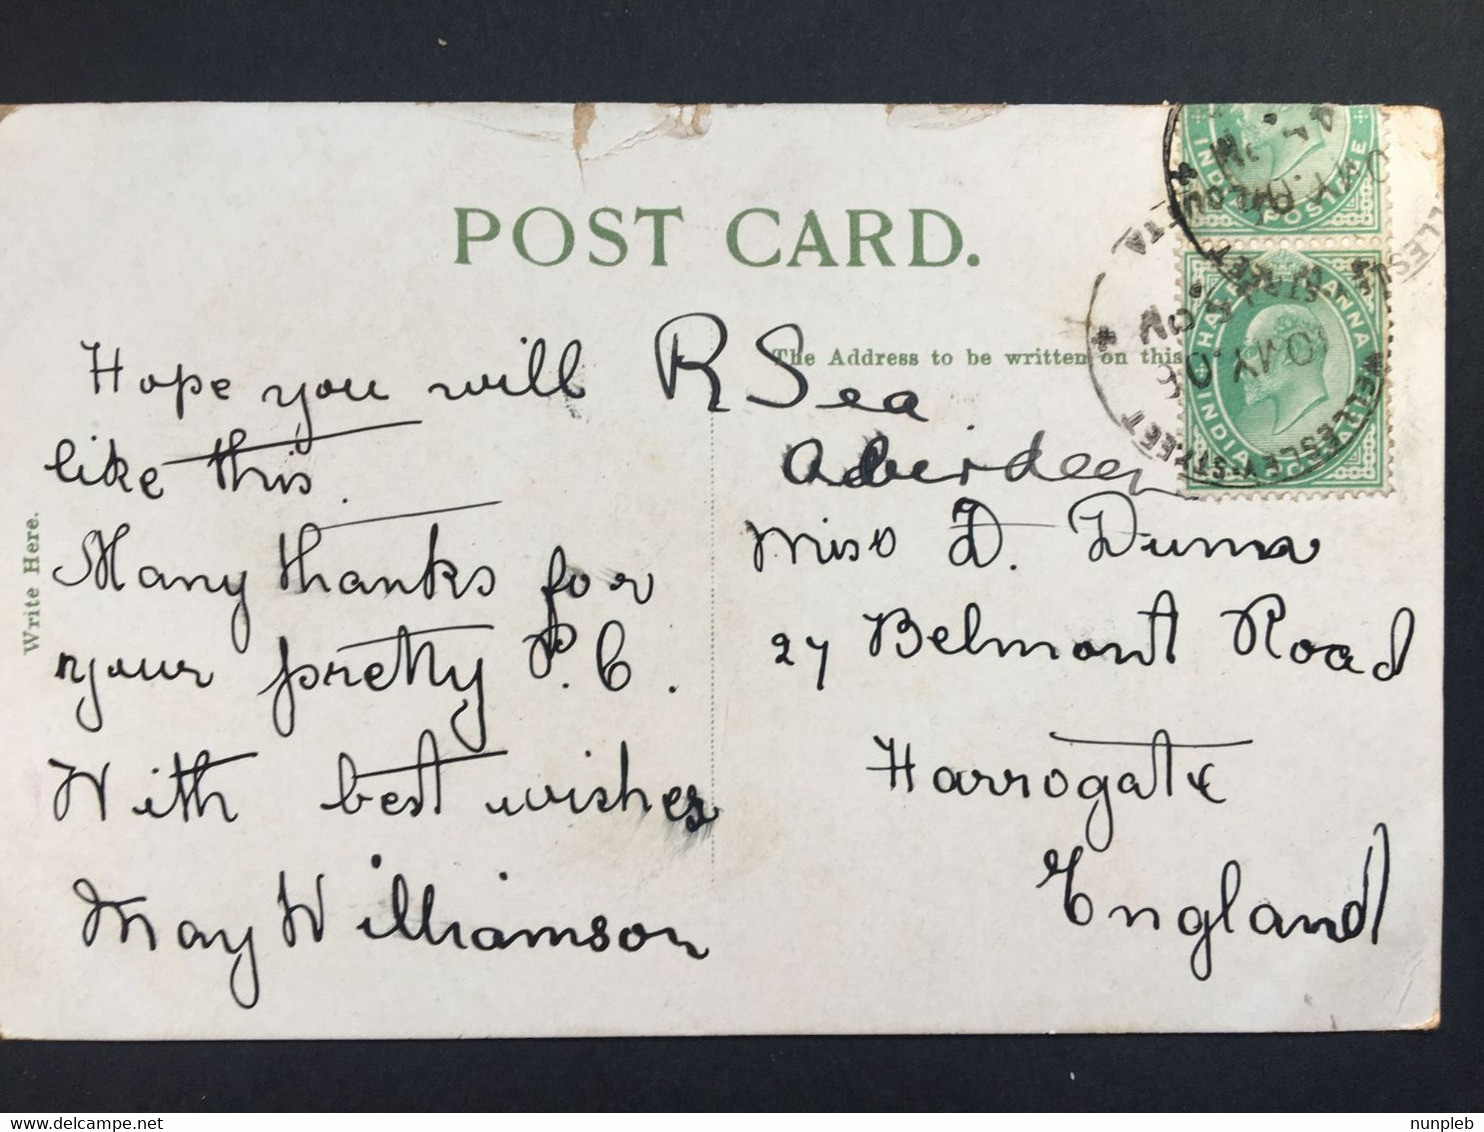 POST CARD.
The Address to be written on this
Write Here.
Hope you will
like this.
Many thanks for
your pretty P.C.
With best wishes
May Williamson
R Sea
Aberdeen
Miss D. Dunn
27 Belmont Road
Harrogate
England
INDIA POSTAGE
HALF ANNA
INDIA POSTAGE
WELLESLEY STREET
CALCUTTA
nunpleb